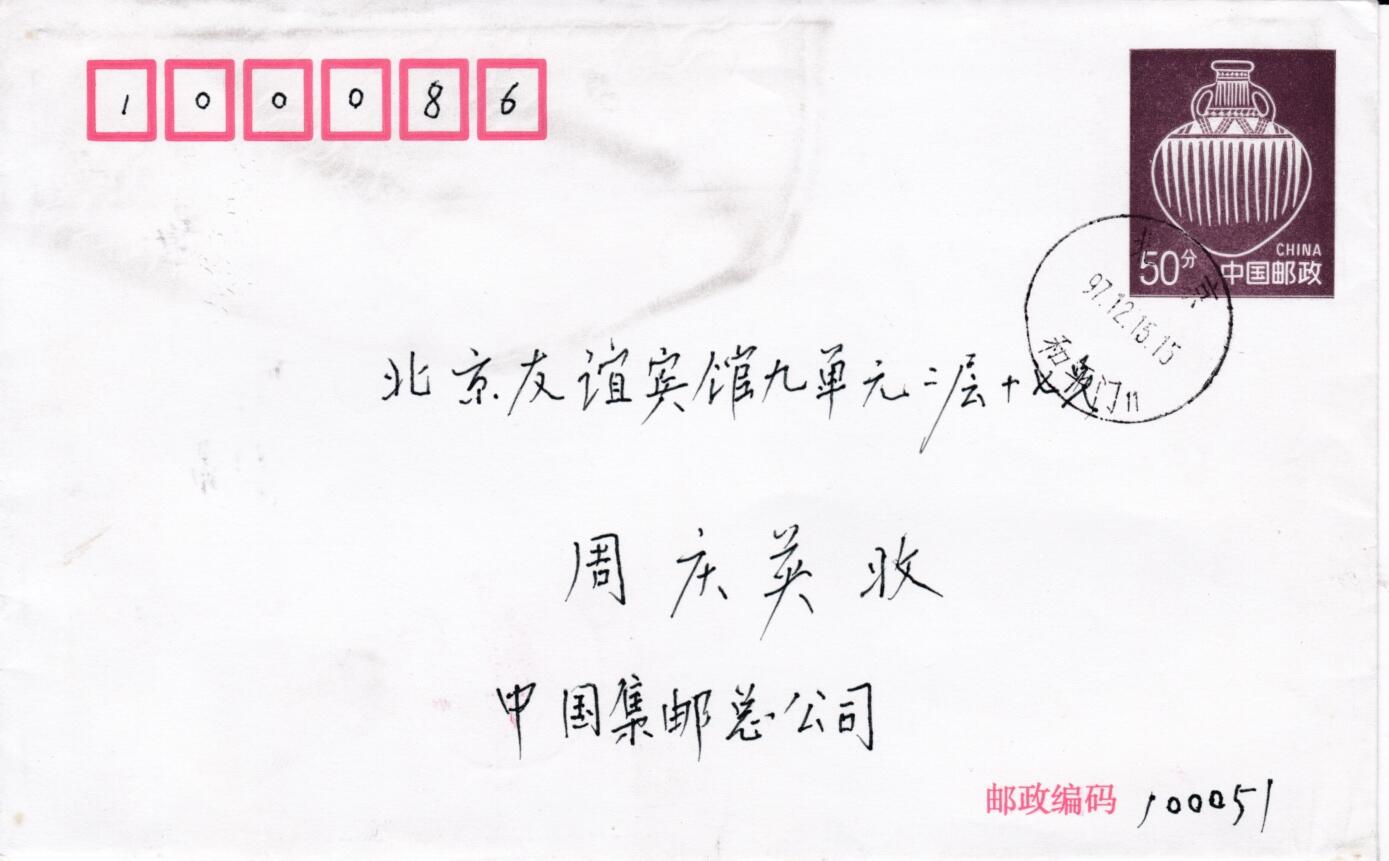 100086
CHINA
50分 中国邮政
北京
97.12.15.15
和平门11
北京友谊宾馆九单元二层十七号
周庆英 收
中国集邮总公司
邮政编码 100051